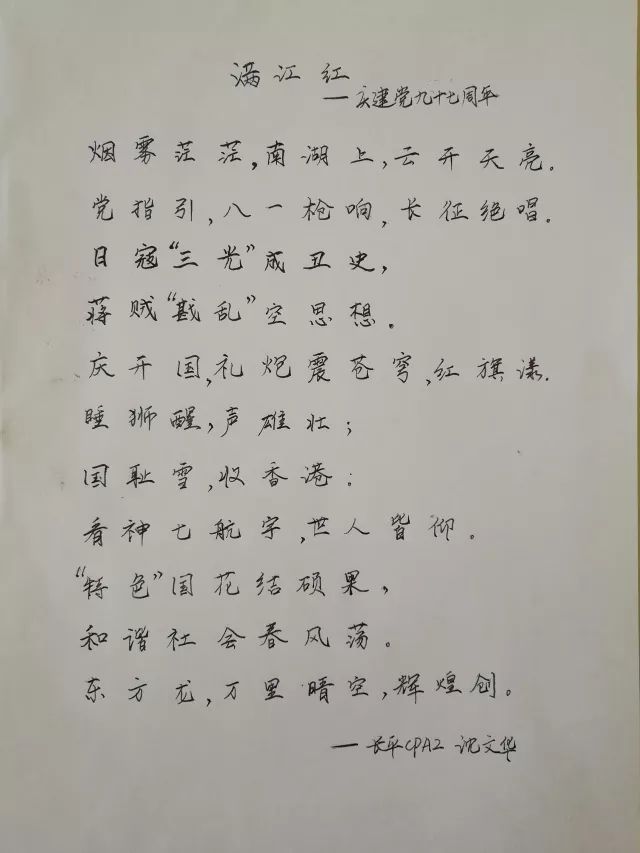 满江红
—庆建党九十七周年
烟雾茫茫,南湖上,云开天亮.
党指引,八一枪响,长征绝唱.
日寇“三光”成丑史,
蒋贼“戡乱”空思想.
庆开国,礼炮震苍穹,红旗漾.
睡狮醒,声雄壮;
国耻雪,收香港;
看神七航宇,世人皆仰.
“特色”国花结硕果,
和谐社会春风荡.
东方龙,万里晴空,辉煌创.
—长平CPA2 沈文华